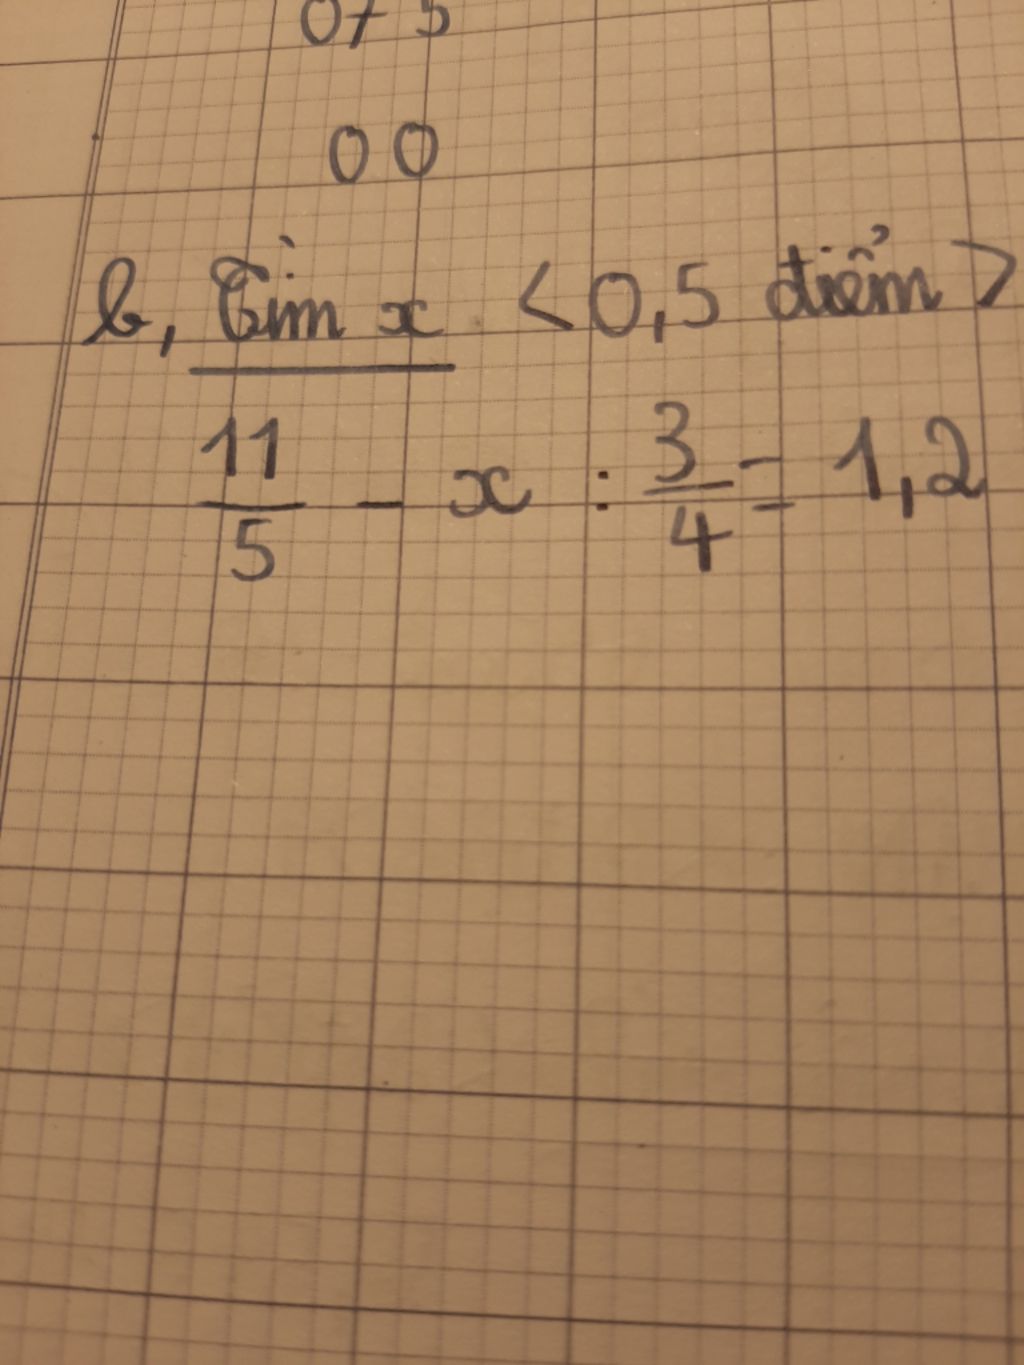 075
00
b, Tìm x <0,5 điểm>
11/5 - x : 3/4 = 1,2